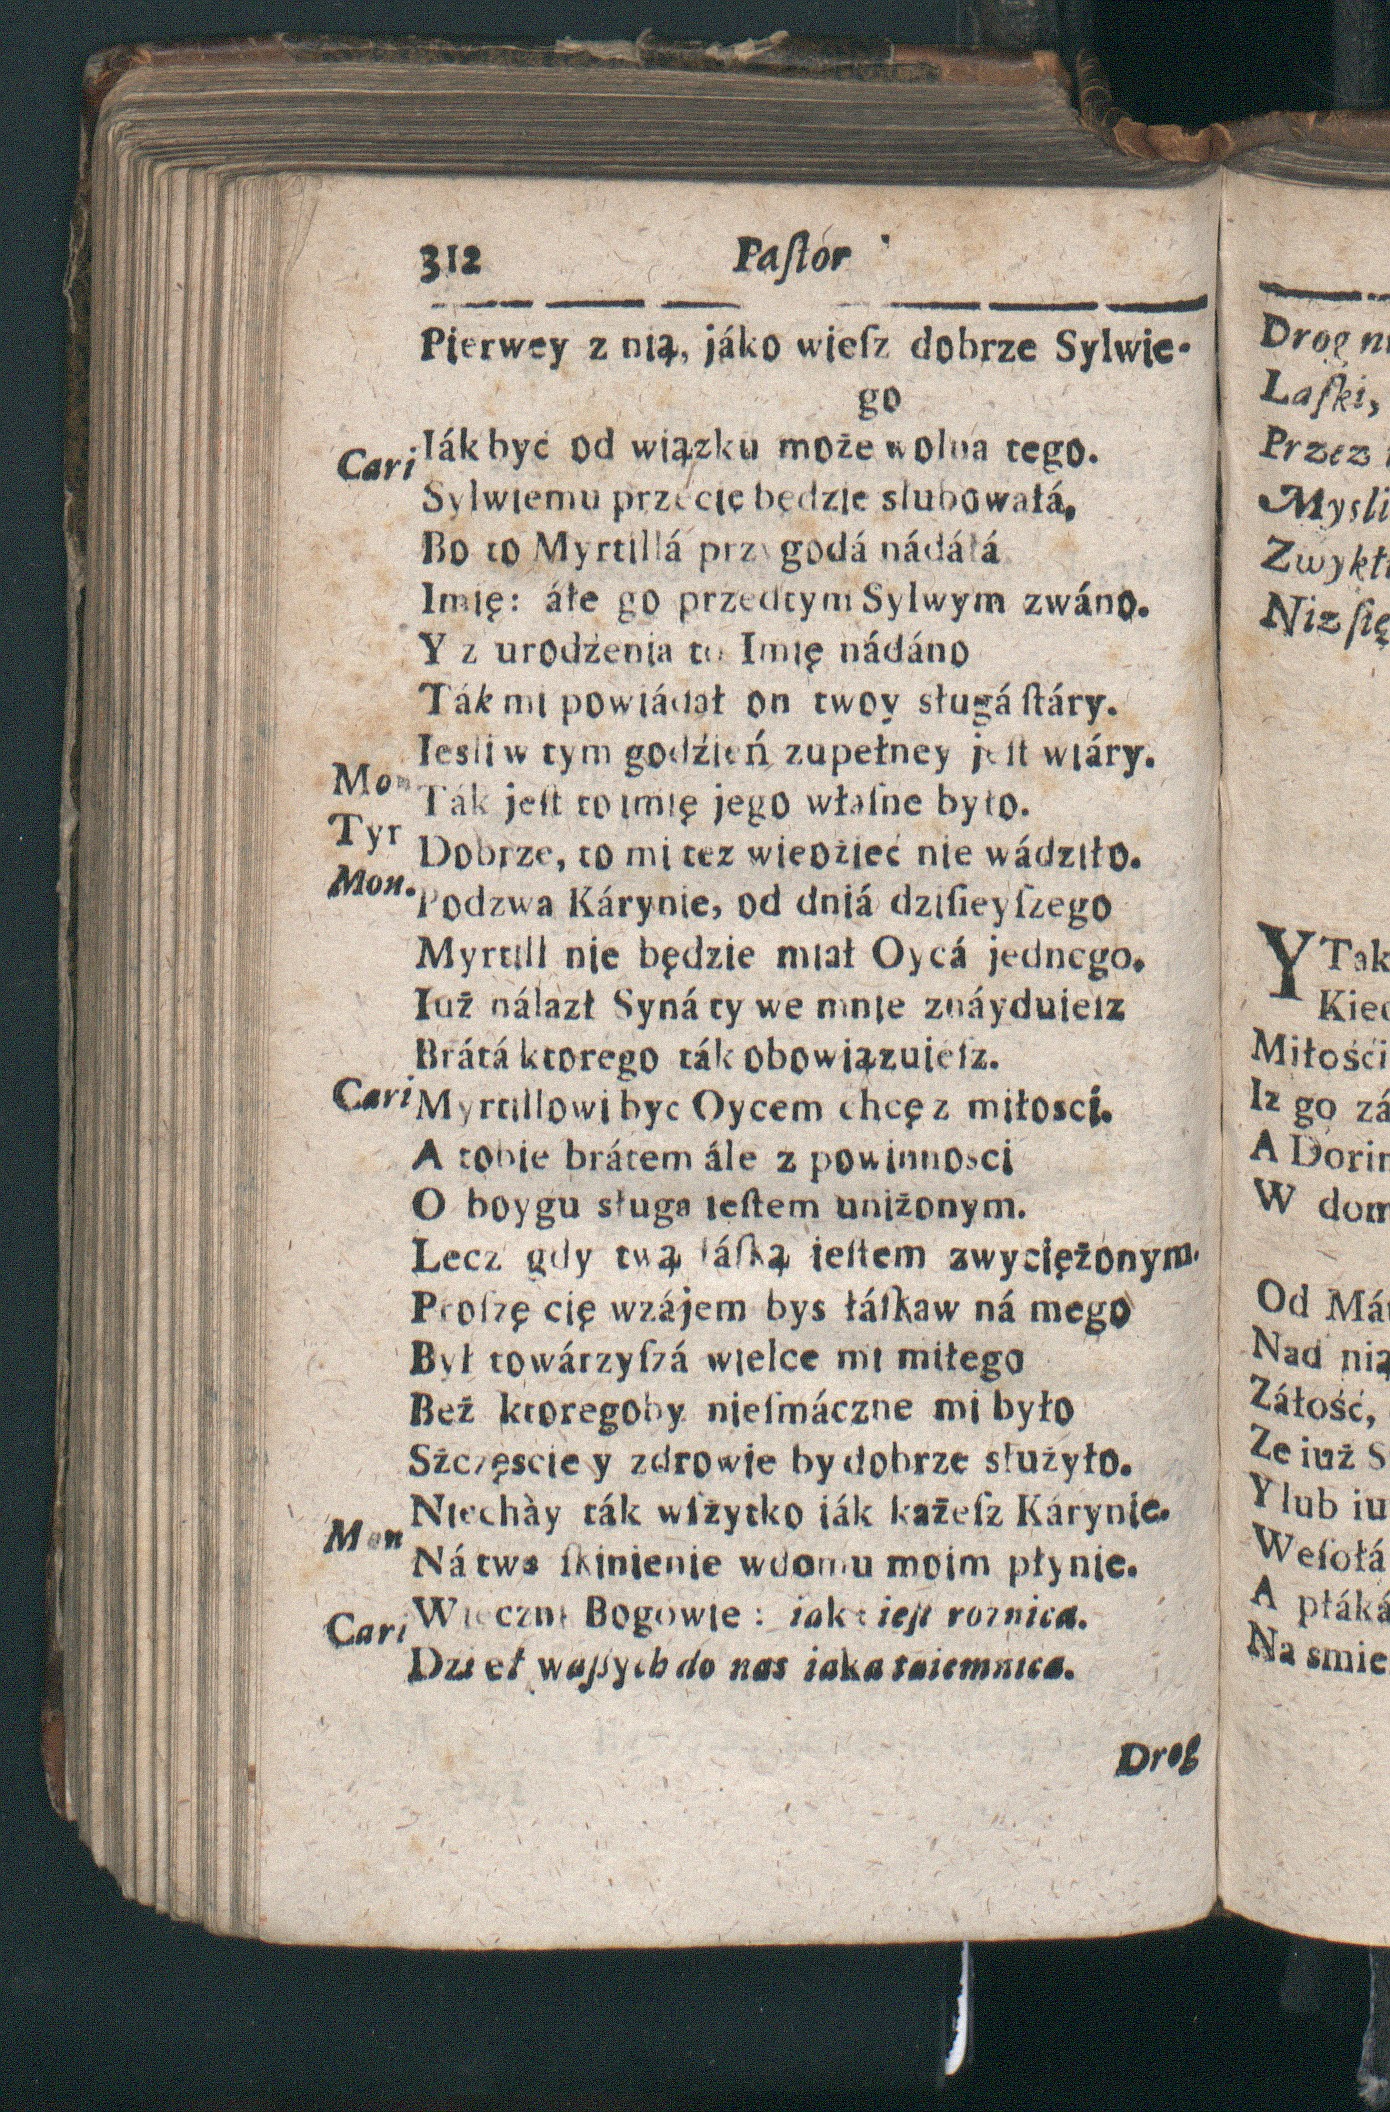 312 Paſtor
Pierwey z nią, jáko wieſz dobrze Sylwie-
go
Cari Iák być od wiązku może wolna tego.
Sylwiemu przecię będzie slubowałá,
Bo to Myrtillá przygodá nádáłá
Imię: áłe go przedtym Sylwym zwáno.
Y z urodźenia to Imię nádáno
Ták mi powiádał on twoy sługá ſtáry.
Iesli w tym godźień zupełney jeſt wiáry.
Mon Ták jeſt to imię jego właſne było.
Tyr Dobrze, to mi tez wiedźieć nie wádziło.
Mon. Podzwa Kárynie, od dniá dziſieyſzego
Myrtill nie będzie miał Oycá jednego.
Iuż nálazł Syná ty we mnie znáyduieſz
Brátá ktorego ták obowiązuieſz.
Cari Myrtillowi byc Oycem chcę z miłosci.
A tobie brátem ále z powinnosci
O boygu sługa ieſtem uniżonym.
Lecz gdy twą łáſką ieſtem zwyciężonym.
Proſzę cię wzájem bys łáſkaw ná mego
Był towárzyſzá wielce mi miłego
Beż ktoregoby nieſmáczne mi było
Sżczęscie y zdrowie by dobrze służyło.
Mon Niechày ták wſżytko iák każeſz Kárynie.
Ná twe ſkinienie w domu moim płynie.
Cari Wieczni Bogowie: iaka ieſt roznica.
Dzieł waſſych do nas iaka taiemnica.
Drog
Drog
Laſki,
Przez
Mysli
Zwykł
Niz ſię
Y Tak
Kied
Miłości
Iz go zá
A Dorin
W dom
Od Má
Nad nią
Záłość,
Ze iuż S
Y lub iu
Weſołá
A płáká
Na smie